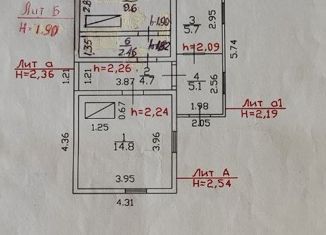 Лит Б
Н=1.90
2.8
9.6
h=1.90
3
5.7
2.95
5.74
1.35
6
2.46
h=1.82
h=2.09
Лит а
Н=2,36
1.21
1.21
h=2,26
2
4.7
3.87
4
5.1
2.56
1.98
2.05
Лит а1
Н=2,19
0.67
1.25
h=2,24
4.36
1
14.8
3.96
3.95
4.31
Лит А
Н=2,54